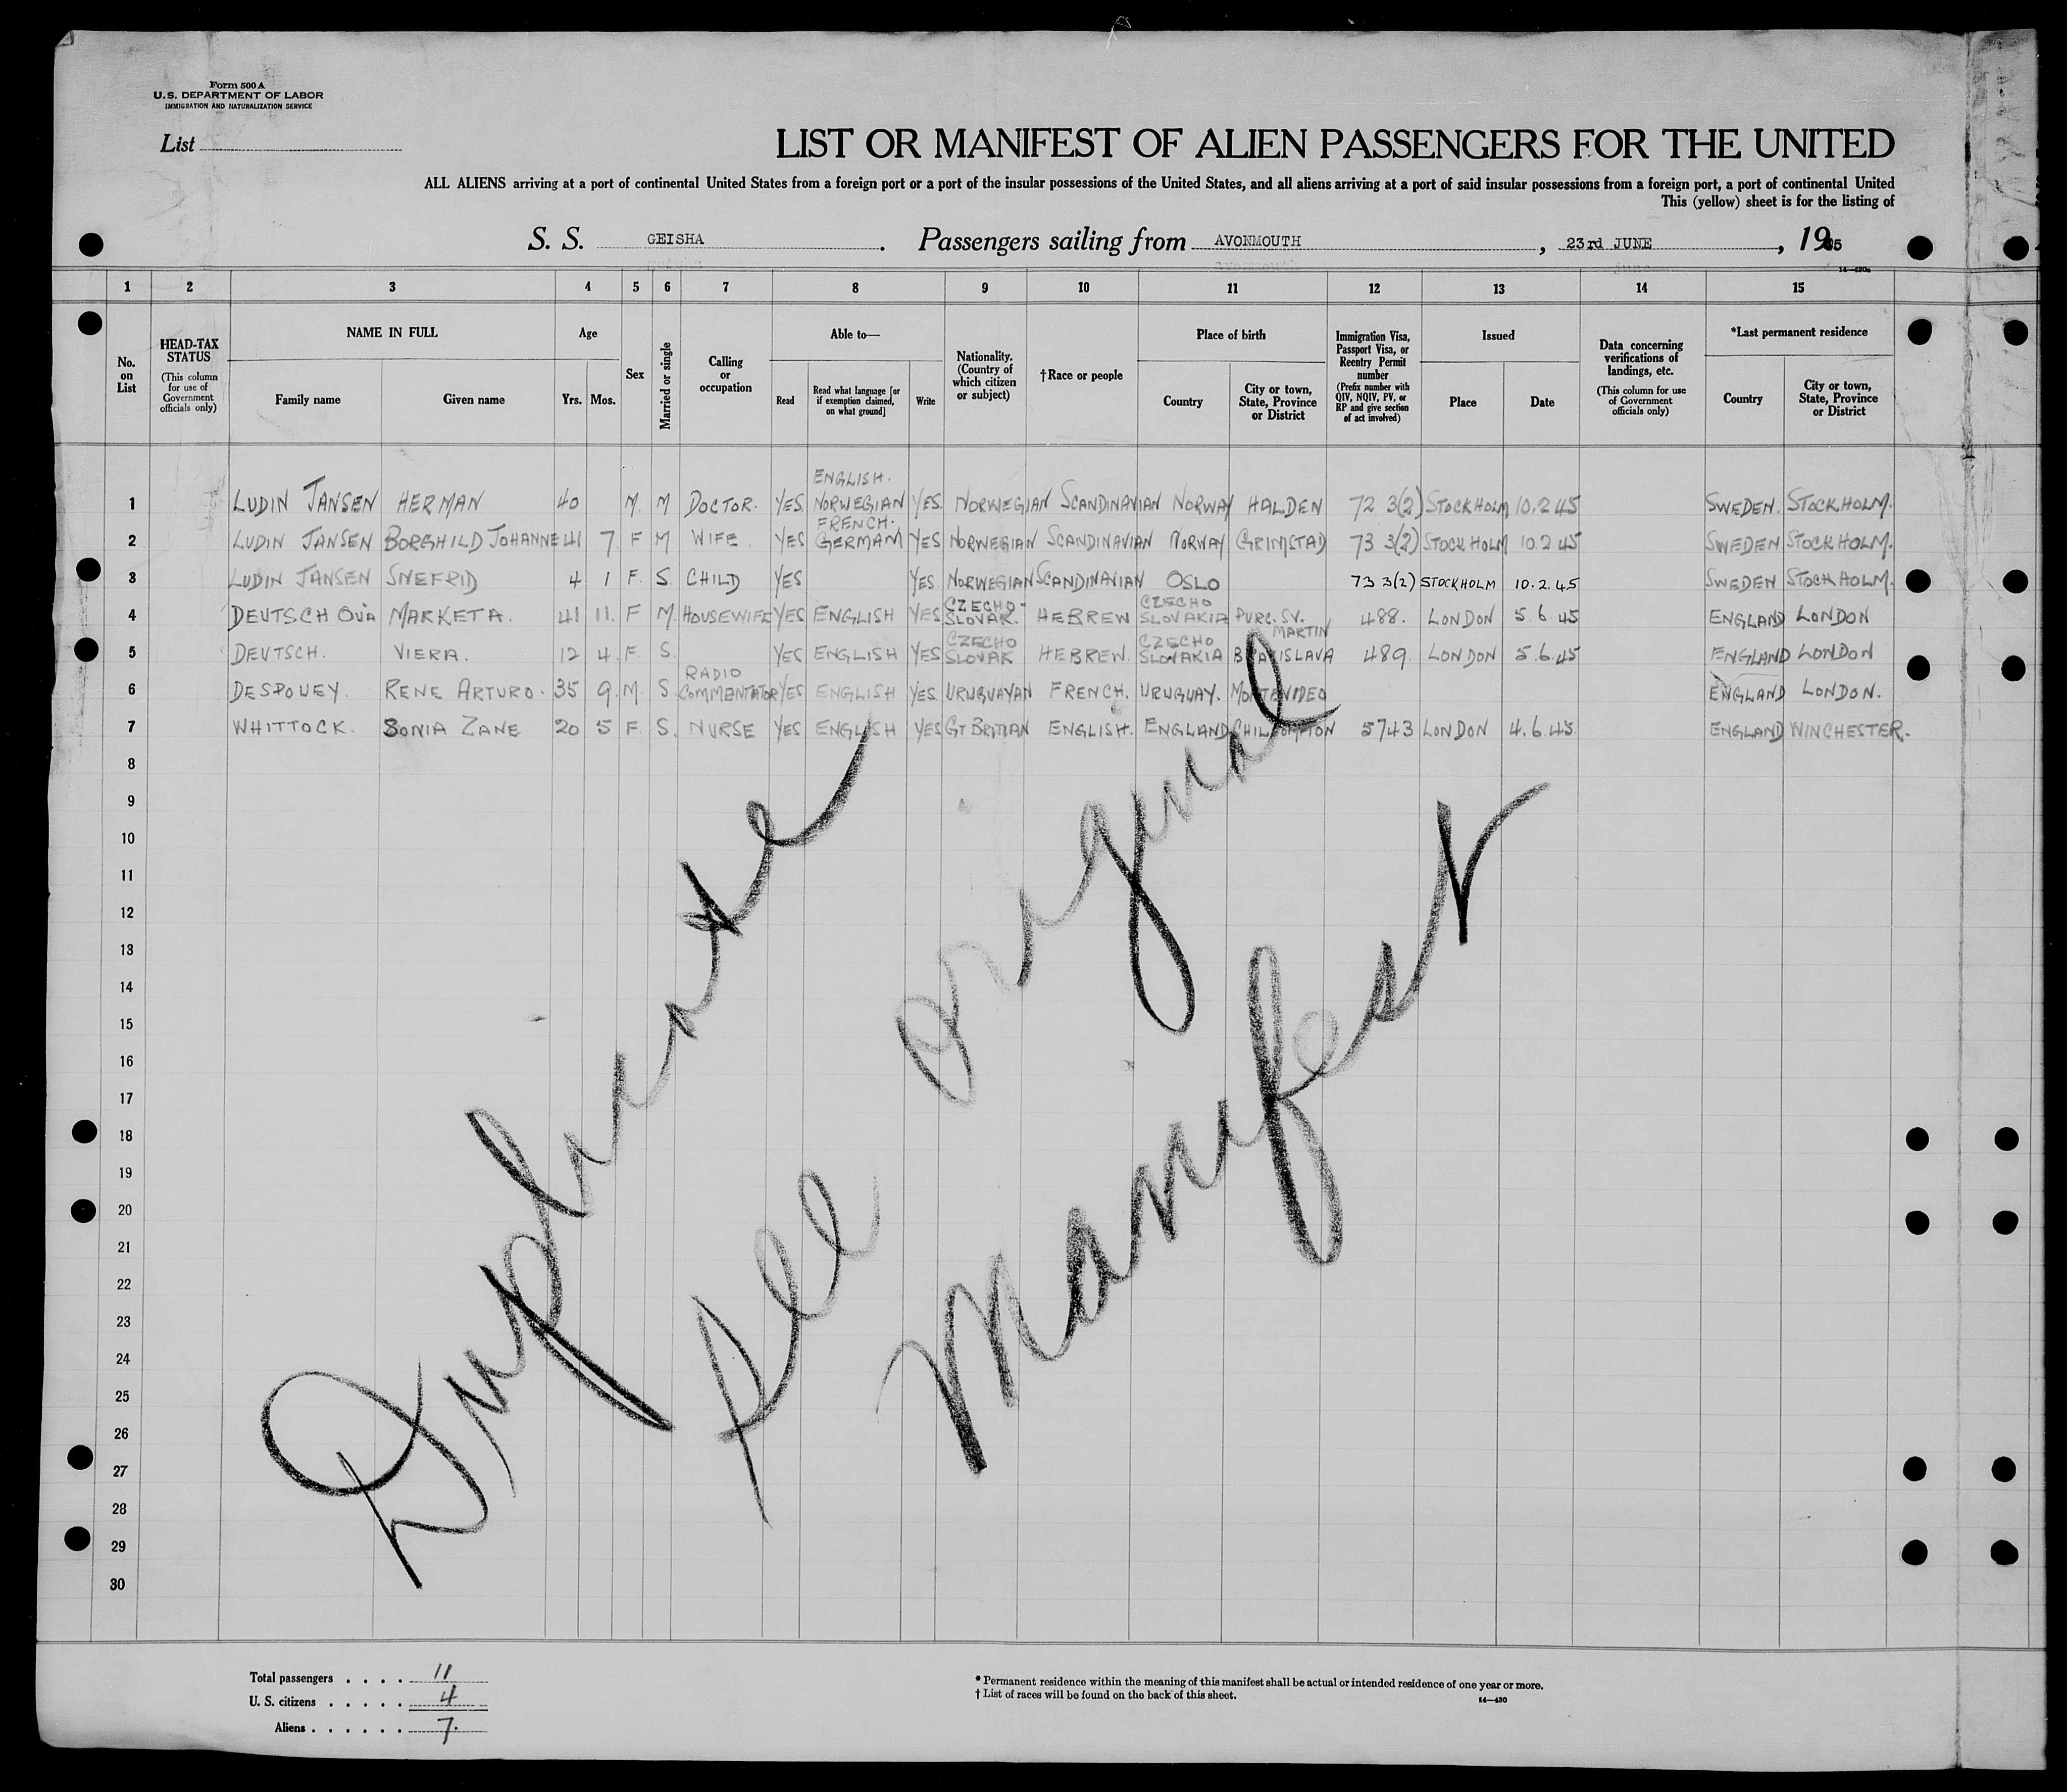 Form 500 A
U.S. DEPARTMENT OF LABOR
IMMIGRATION AND NATURALIZATION SERVICE
List
LIST OR MANIFEST OF ALIEN PASSENGERS FOR THE UNITED
ALL ALIENS arriving at a port of continental United States from a foreign port or a port of the insular possessions of the United States, and all aliens arriving at a port of said insular possessions from a foreign port, a port of continental United
This (yellow) sheet is for the listing of
S. S. GEISHA. Passengers sailing from AVONMOUTH, 23rd JUNE, 1945
14—430a
1 2 3 4 5 6 7 8 9 10 11 12 13 14 15
No. on List
HEAD-TAX STATUS (This column for use of Government officials only)
NAME IN FULL
Family name Given name
Age
Yrs. Mos.
Sex
Married or single
Calling or occupation
Able to—
Read Read what language [or if exemption claimed, on what ground] Write
Nationality. (Country of which citizen or subject)
†Race or people
Place of birth
Country City or town, State, Province or District
Immigration Visa, Passport Visa, or Reentry Permit number (Prefix number with QIV, NQIV, PV, or RP and give section of act involved)
Issued
Place Date
Data concerning verifications of landings, etc. (This column for use of Government officials only)
*Last permanent residence
Country City or town, State, Province or District
1 LUDIN JANSEN HERMAN 40 M. M DOCTOR. YES ENGLISH. NORWEGIAN YES. NORWEGIAN SCANDINAVIAN NORWAY HALDEN 72 3(2) STOCKHOLM 10.2.45 SWEDEN. STOCKHOLM.
2 LUDIN JANSEN BORGHILD JOHANNE 41 7 F M WIFE. YES FRENCH. GERMAN YES NORWEGIAN SCANDINAVIAN NORWAY GRIMSTAD 73 3(2) STOCKHOLM 10.2.45 SWEDEN STOCKHOLM.
3 LUDIN JANSEN SNEFRID 4 1 F. S. CHILD YES YES NORWEGIAN SCANDINAVIAN OSLO 73 3(2) STOCKHOLM 10.2.45 SWEDEN STOCKHOLM.
4 DEUTSCH OVA MARKETA. 41 11. F M. HOUSEWIFE YES ENGLISH YES CZECHO-SLOVAK. HEBREW CZECHO SLOVAKIA PURC. SV. MARTIN 488. LONDON 5.6.45 ENGLAND LONDON
5 DEUTSCH. VIERA. 12 4. F. S. YES ENGLISH YES CZECHO SLOVAK HEBREW. CZECHO SLOVAKIA BRATISLAVA 489. LONDON 5.6.45 ENGLAND LONDON
6 DESPOUEY. RENE ARTURO. 35 9. M. S. RADIO COMMENTATOR YES ENGLISH YES. URUGUAYAN FRENCH. URUGUAY. MONTEVIDEO ENGLAND LONDON.
7 WHITTOCK. SONIA ZANE 20 5 F. S. NURSE YES ENGLISH YES GT BRITIAN ENGLISH. ENGLAND CHILCOMPTON 5743 LONDON 4.6.45. ENGLAND WINCHESTER.
8
9
10
11
12
13
14
15
16
17
18
19
20
21
22
23
24
25
26
27
28
29
30
Duplicate
see original
Manifest
Total passengers . . . . 11
U. S. citizens . . . . . 4
Aliens . . . . . . 7.
* Permanent residence within the meaning of this manifest shall be actual or intended residence of one year or more.
† List of races will be found on the back of this sheet.
14—430